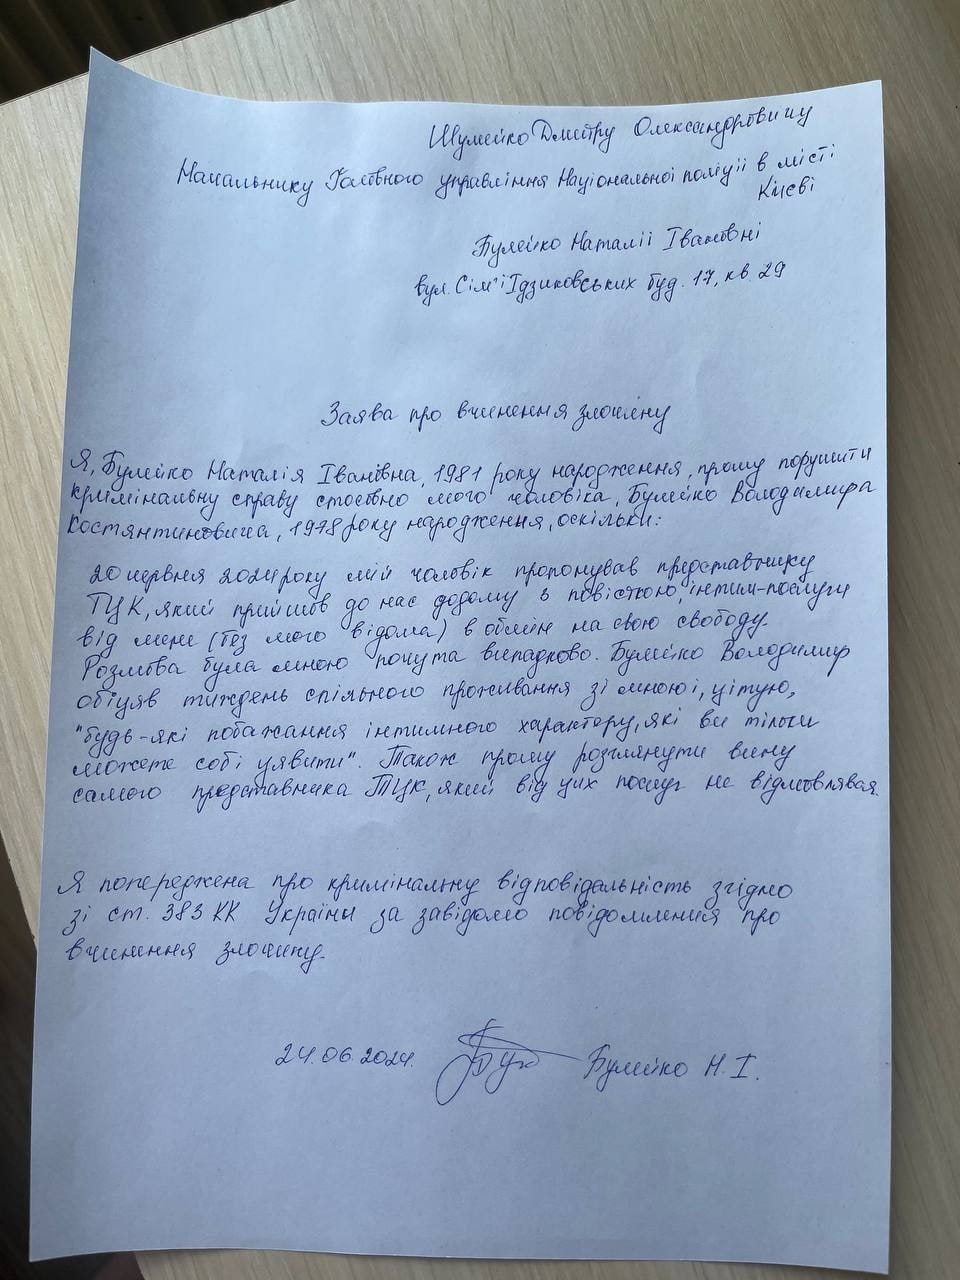 Шумейко Дмитру Олександровичу
Начальнику Головного управління Національної поліції в місті
Києві
Булейко Наталії Івановні
вул. Сім'ї Ідзиковських буд. 17, кв. 29
Заява про вчинення злочину
Я, Булейко Наталія Іванівна, 1981 року народження, прошу порушити
кримінальну справу стосовно мого чоловіка, Булейко Володимира
Костянтиновича, 1978 року народження, оскільки:
20 червня 2024 року мій чоловік пропонував представнику
ТЦК, який прийшов до нас додому з повісткою, інтим-послуги
від мене (без мого відома) в обмін на свою свободу.
Розмова була мною почута випадково. Булейко Володимир
обіцяв тиждень спільного проживання зі мною і, цітую,
"будь-які побажання інтимного характеру, які ви тільки
можете собі уявити". Також прошу розглянути вину
самого представника ТЦК, який від цих послуг не відмовлявся.
Я попереджена про кримінальну відповідальність згідно
зі ст. 383 КК України за завідомо повідомлення про
вчинення злочину.
24.06.2024. Булейко Н. І.